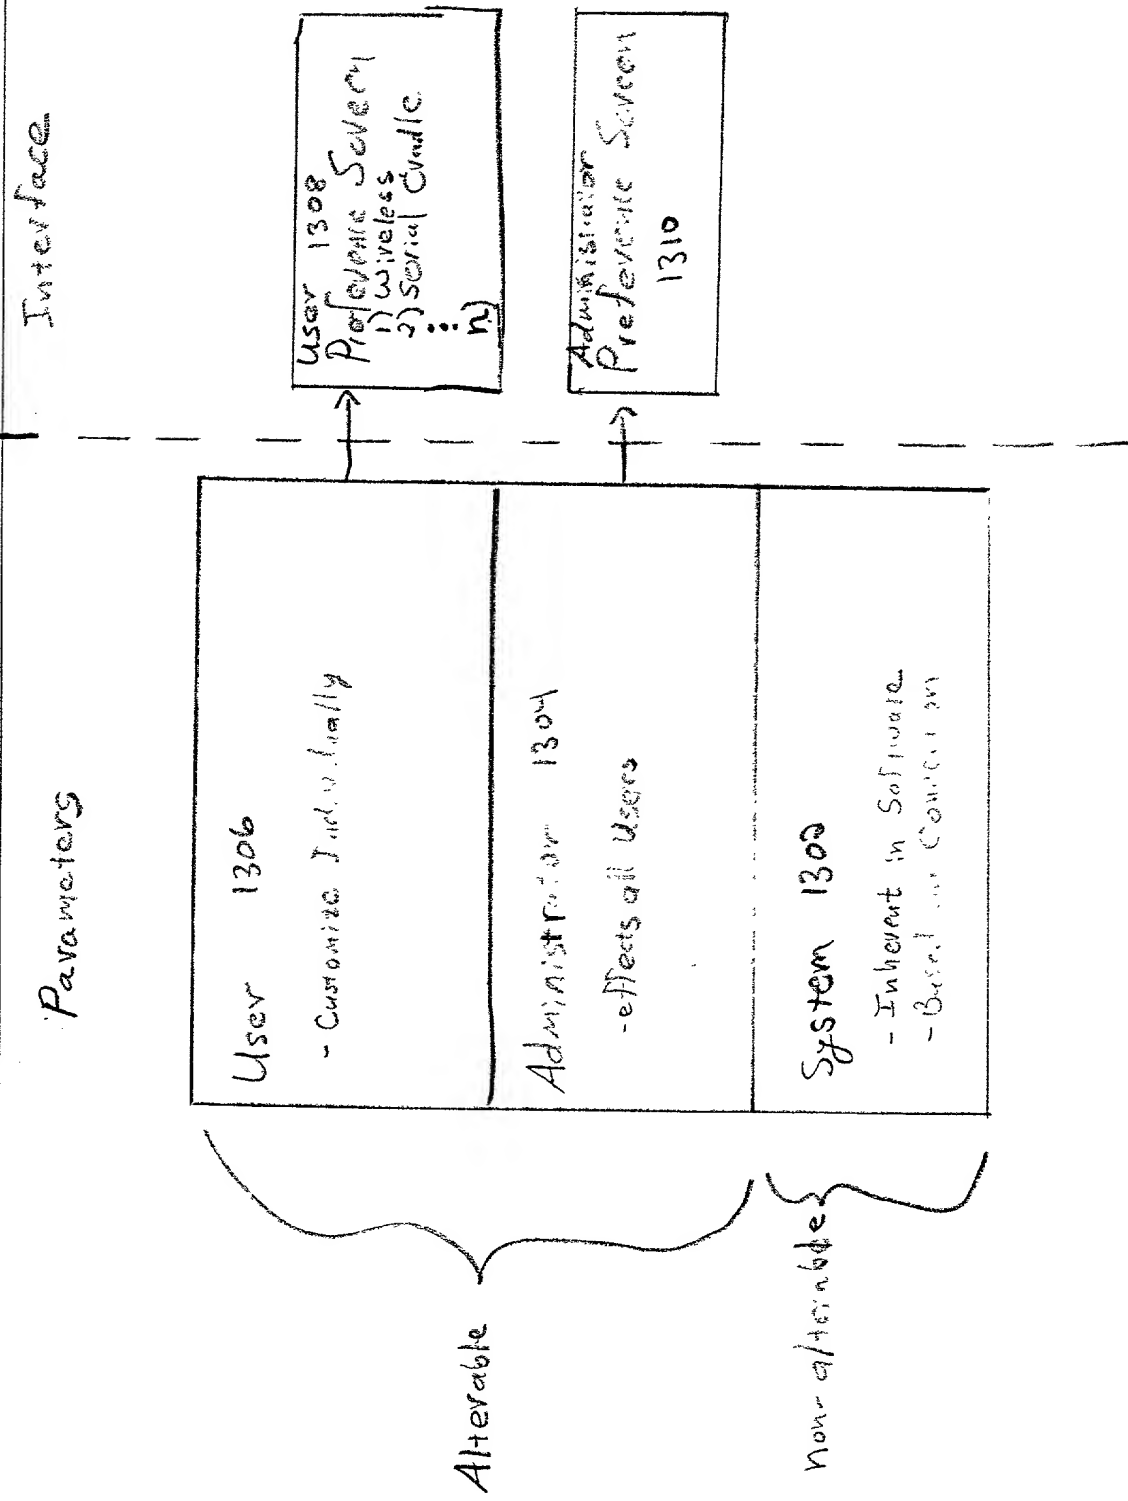 Parameters
Interface
User 1306
- Customize Individually
Administrator 1304
- effects all Users
System 1302
- Inherent in Software
- Based on
Alterable
non-alterable
User 1308
Preference Screen
1) Wireless
2) Serial Cradle
⋮
n)
Administrator
Preference Screen
1310